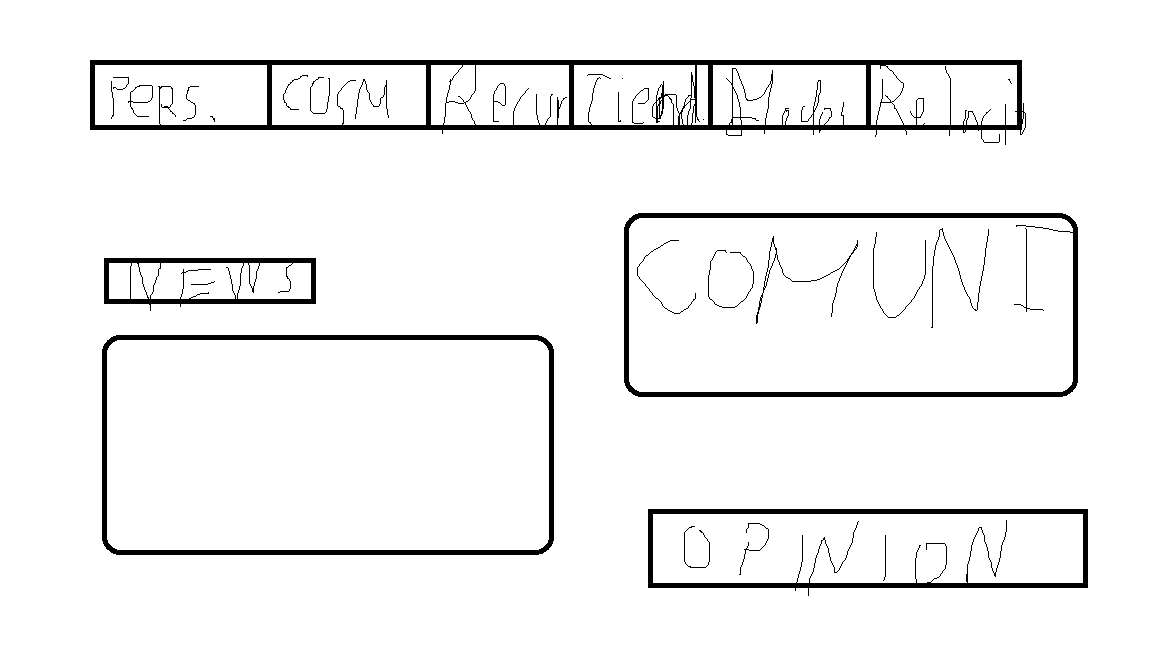 Pers. COSM Recur Tiend Modos
NEWS
COMUNI
OPINION